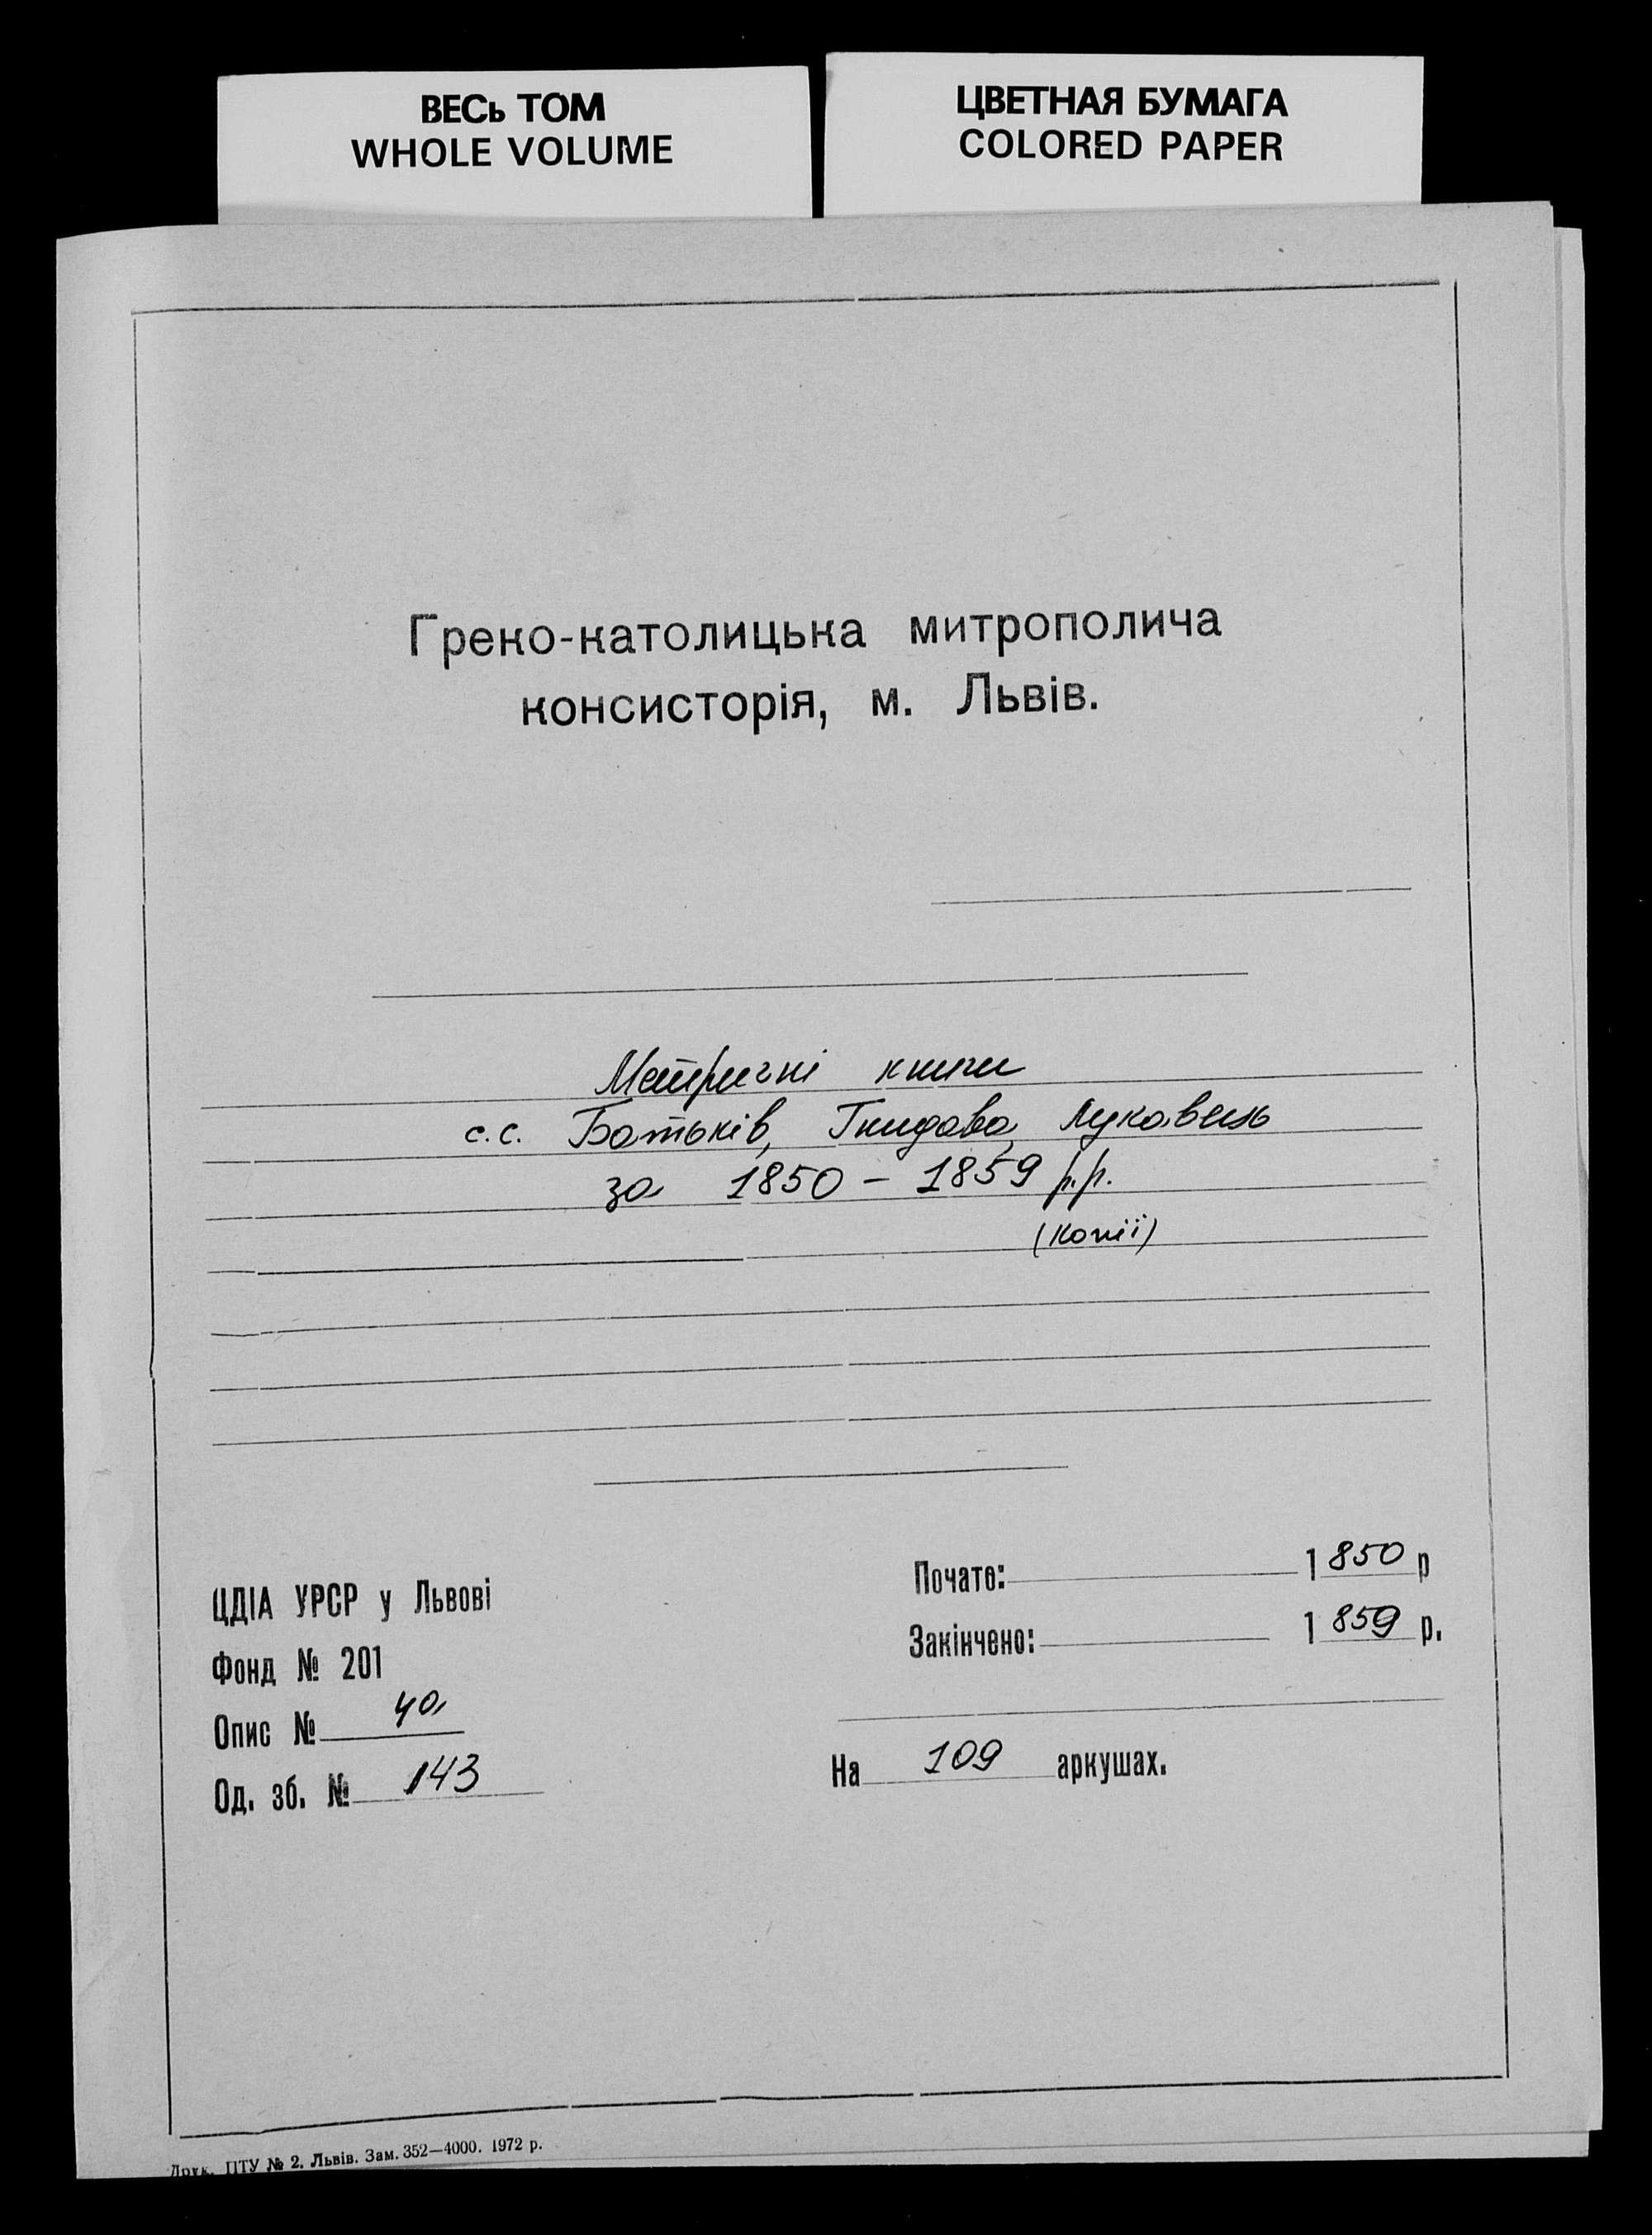 ВЕСЬ ТОМ
WHOLE VOLUME
ЦВЕТНАЯ БУМАГА
COLORED PAPER
Греко-католицька митрополича
консисторія, м. Львів.
Метричні книги
с.с. Батьків, Гнидава, Лукавець
за 1850 - 1859 р.р.
(копії)
ЦДІА УРСР у Львові
Фонд № 201
Опис № 4а
Од. зб. № 143
Почато: 1850 р
Закінчено: 1859 р.
На 109 аркушах.
Друк. ПТУ № 2. Львів. Зам. 352—4000. 1972 р.